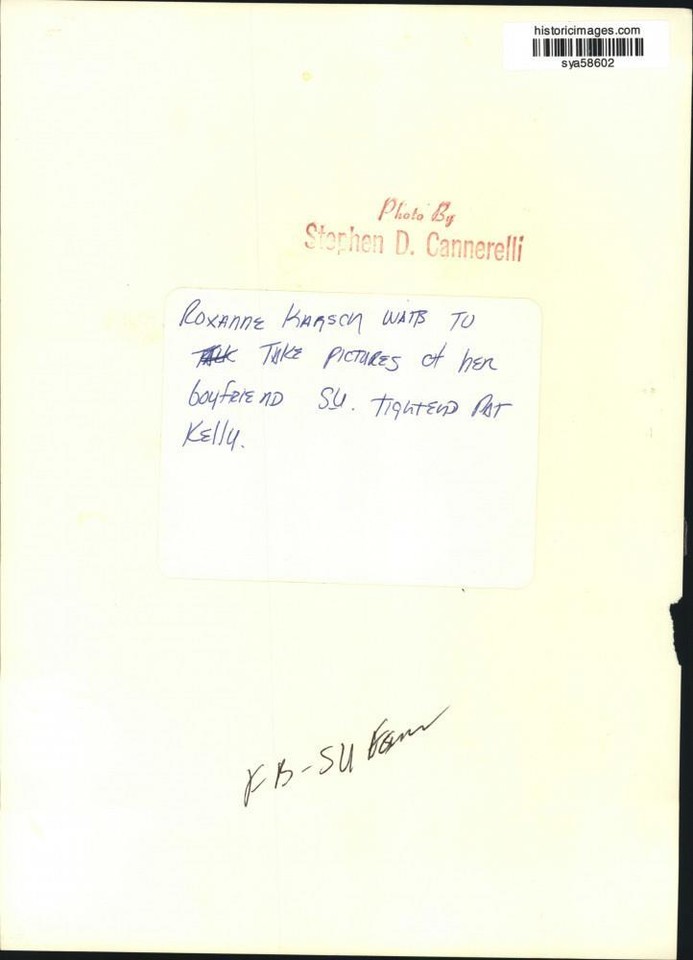 historicimages.com
sya58602
Photo By
Stephen D. Cannerelli
Roxanne Karsch waits to
Talk Take pictures of her
boyfriend SU. tightend Pat
Kelly.
FB-SU